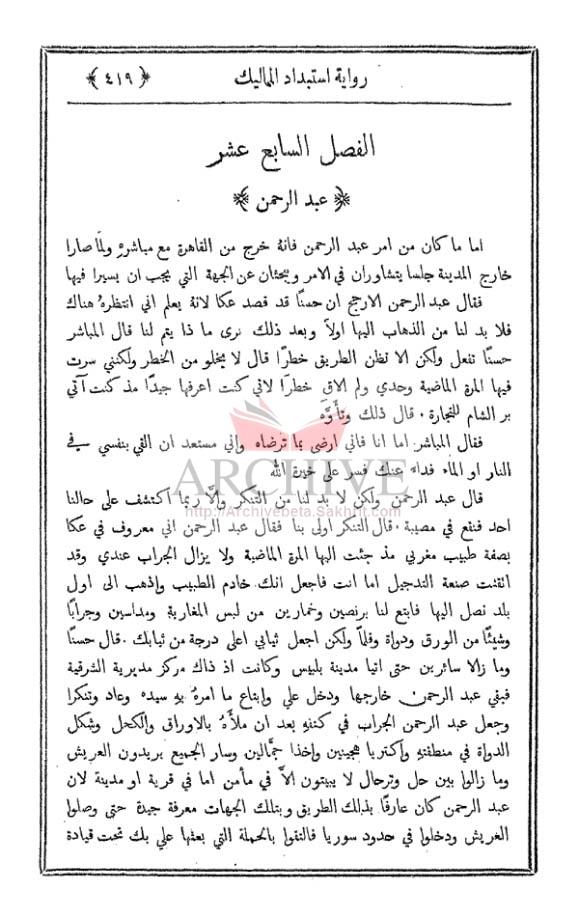 رواية استبداد الماليك ﴿ ٤١٩ ﴾
الفصل السابع عشر
﴿ عبد الرحمن ﴾
اما ما كان من امر عبد الرحمن فانهُ خرج من القاهرة مع مباشرهِ ولما صارا
خارج المدينة جلسا يتشاوران في الامر ويبحثان عن الجهة التي يجب ان يسيرا فيها
فقال عبد الرحمن الارجح ان حسنًا قد قصد عكا لانهُ يعلم اني انتظرهُ هناك
فلا بد لنا من الذهاب اليها اولاً وبعد ذلك نرى ما ذا يتم لنا قال المباشر
حسنًا تفعل ولكن الا تظن الطريق خطرًا قال لا يخلو من الخطر ولكنني سرت
فيها المرة الماضية وحدي ولم الاق خطرًا لاني كنت اعرفها جيدًا مذ كنت آتي
بر الشام للتجارة . قال ذلك وتأَوَّه
فقال المباشر اما انا فاني ارضى بما ترضاه واني مستعد ان القي بنفسي في
النار او الماء فداءً عنك فسر على خيرة الله
ARCHIVE
قال عبد الرحمن ولكن لا بد لنا من التنكر والَّا ربما اكتشف على حالنا
http://Archivebeta.Sakhrit.com
احد فنقع في مصيبة . قال التنكر اولى بنا فقال عبد الرحمن اني معروف في عكا
بصفة طبيب مغربي مذ جئت اليها المرة الماضية ولا يزال الجراب عندي وقد
اتقنت صنعة التدجيل اما انت فاجعل انك خادم الطبيب واذهب الى اول
بلد نصل اليها فابتع لنا برنصين وخمارين من لبس المغاربة ومداسين وجرابًا
وشيئًا من الورق ودواة وقلمًا ولكن اجعل ثيابي اعلى درجة من ثيابك . قال حسنًا
وما زالا سائرين حتى اتيا مدينة بلبيس وكانت اذ ذاك مركز مديرية الشرقية
فبقي عبد الرحمن خارجها ودخل علي وابتاع ما امرهُ بهِ سيده وعاد وتنكرا
وجعل عبد الرحمن الجراب في كتفهِ بعد ان ملأهُ بالاوراق والكحل وشكل
الدواة في منطقتهِ واكتريا هجينين واخذا جمَّالين وسار الجميع يريدون العريش
وما زالوا بين حل وترحال لا يبيتون الاَّ في مأمن اما في قرية او مدينة لان
عبد الرحمن كان عارفًا بذلك الطريق وبتلك الجهات معرفة جيدة حتى وصلوا
العريش ودخلوا في حدود سوريا فالتقوا بالحملة التي بعثها علي بك تحت قيادة